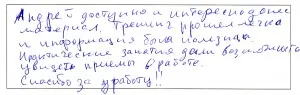 Андрей доступно и интересно донес
материал. Тренинг прошел легко
и информация была полезна
Практические занятия дали возможность
увидеть приемы в работе.
Спасибо за работу!!